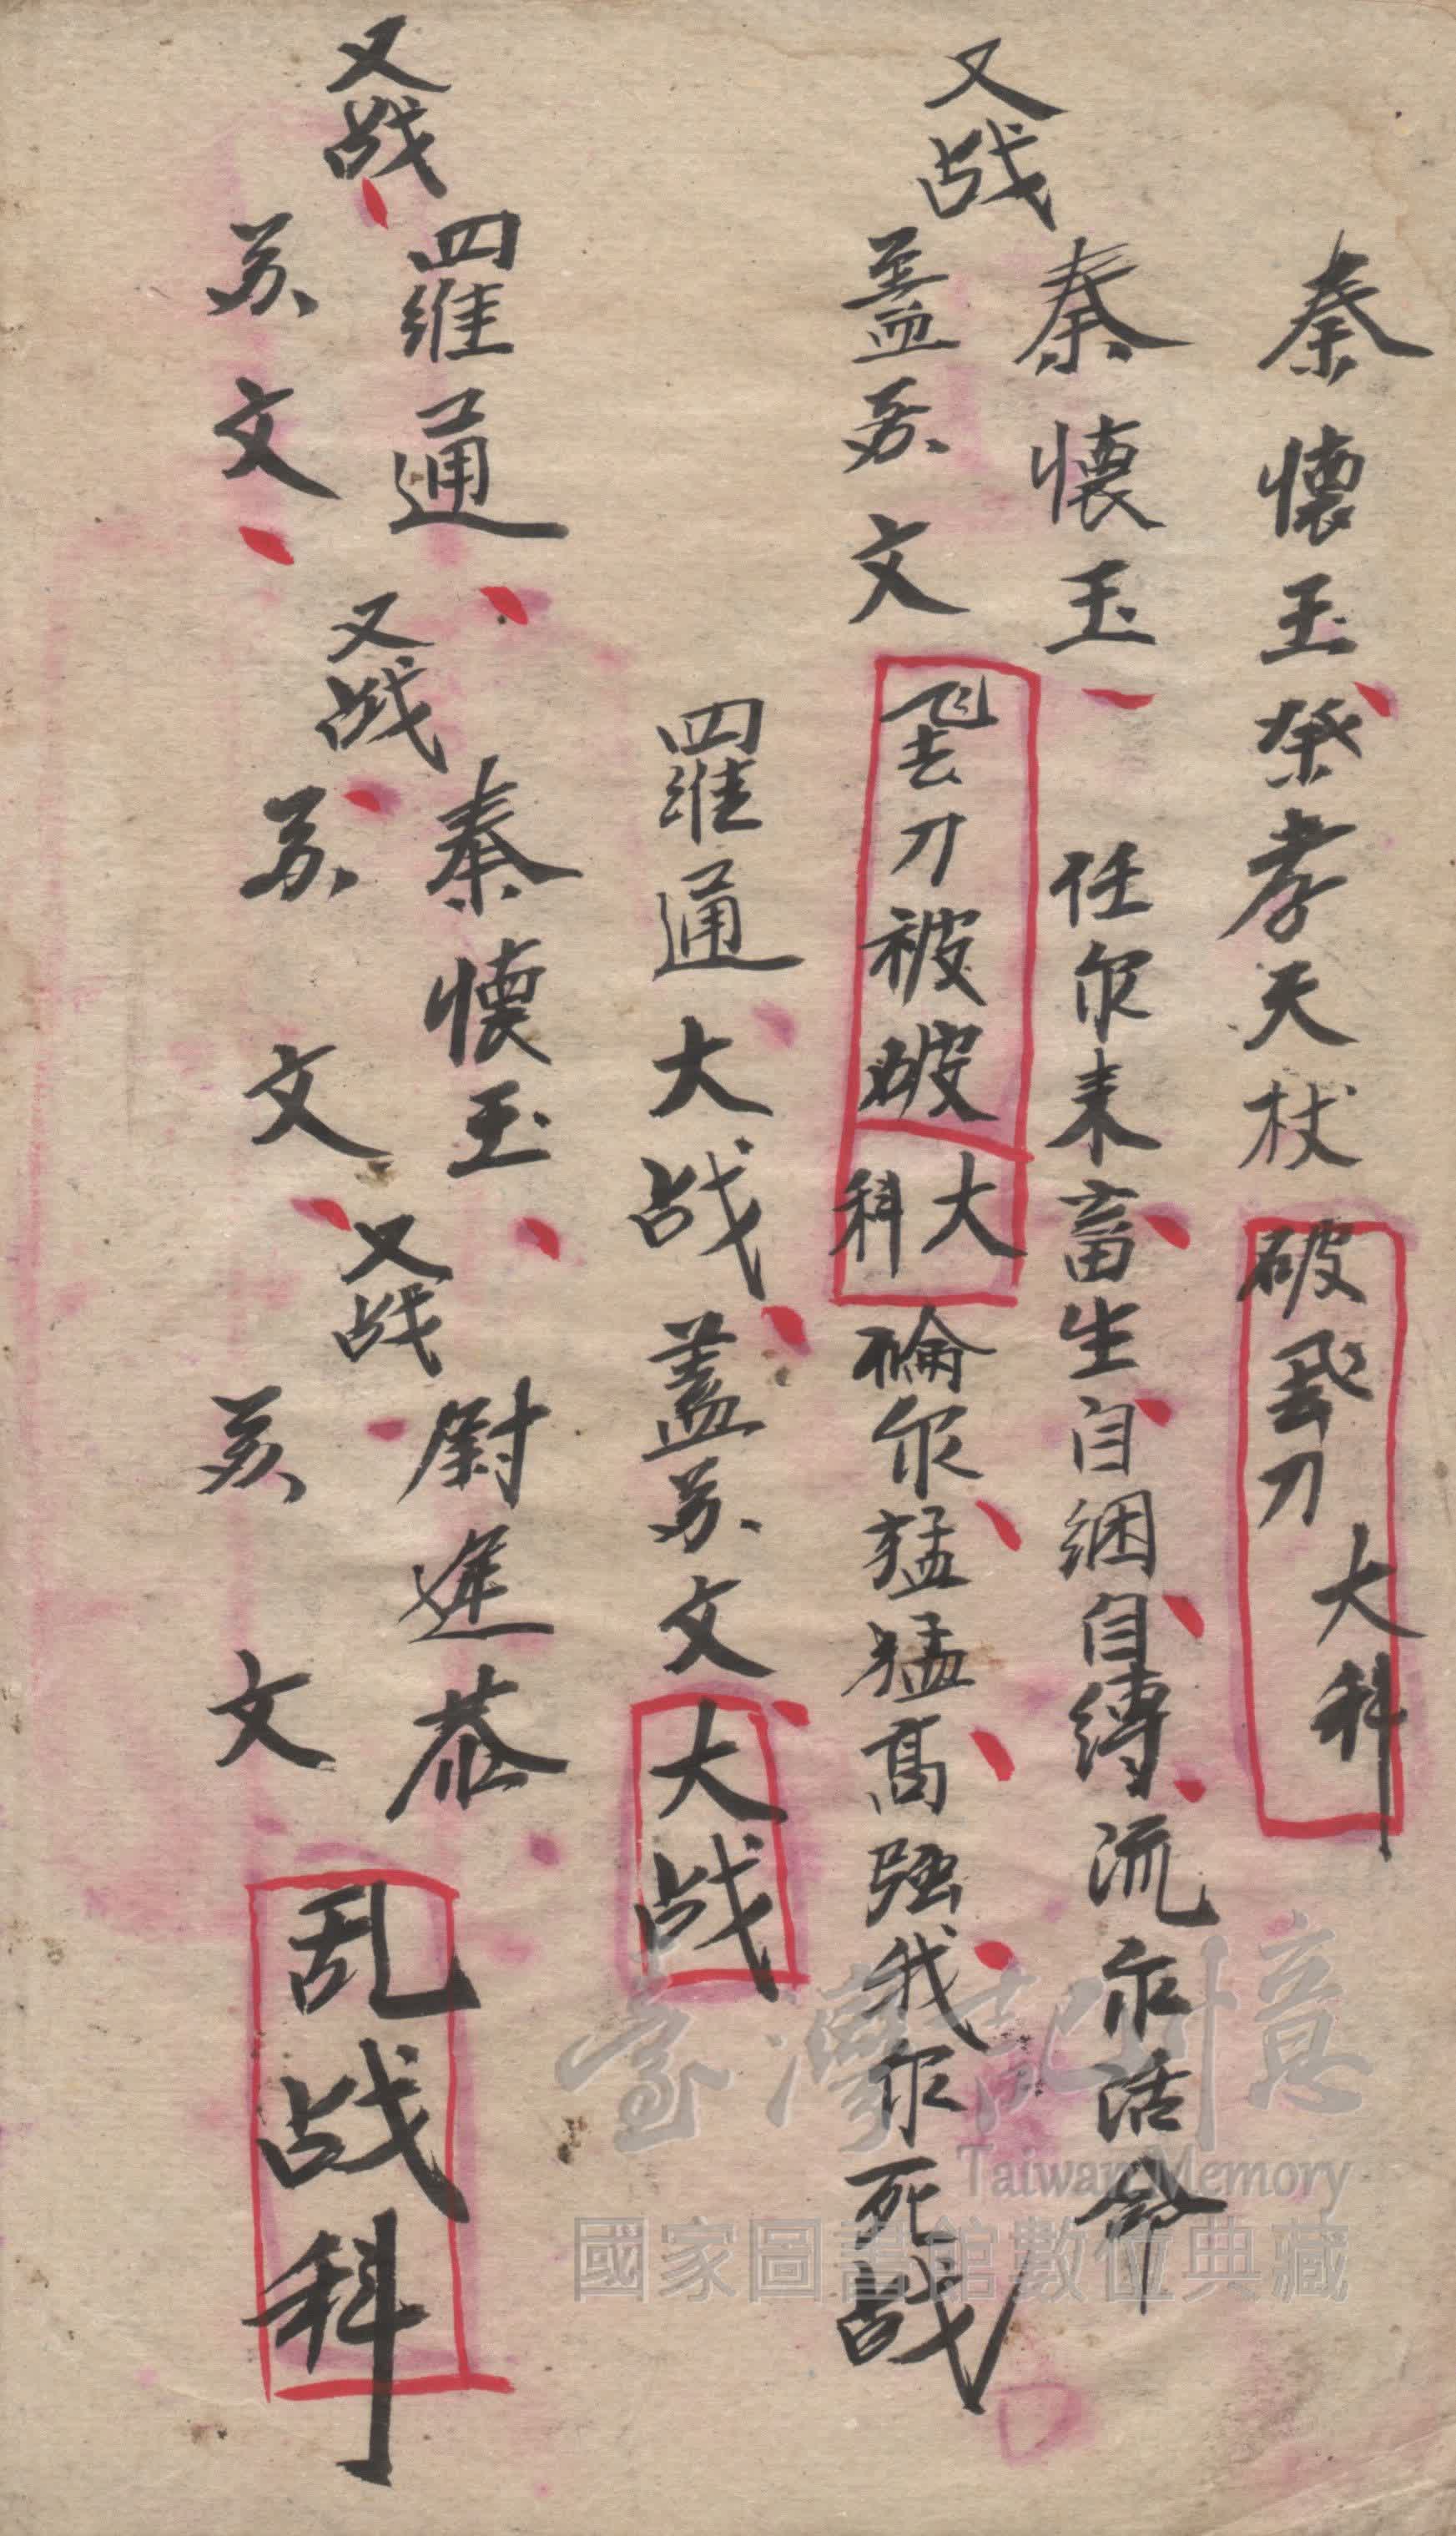 秦懷玉祭孝天杖 破飛刀 大科
又战 秦懷玉 任尔来畜生自綑自縛流尔活命
盖苏文 飞去刀被破 大科 尔猛猛高強我尔死战
羅通大战盖苏文 大战
又战 羅通 又战 秦懷玉 又战 尉遲恭
苏文 苏文 苏文 乱战科
臺灣記憶
Taiwan Memory
國家圖書館數位典藏